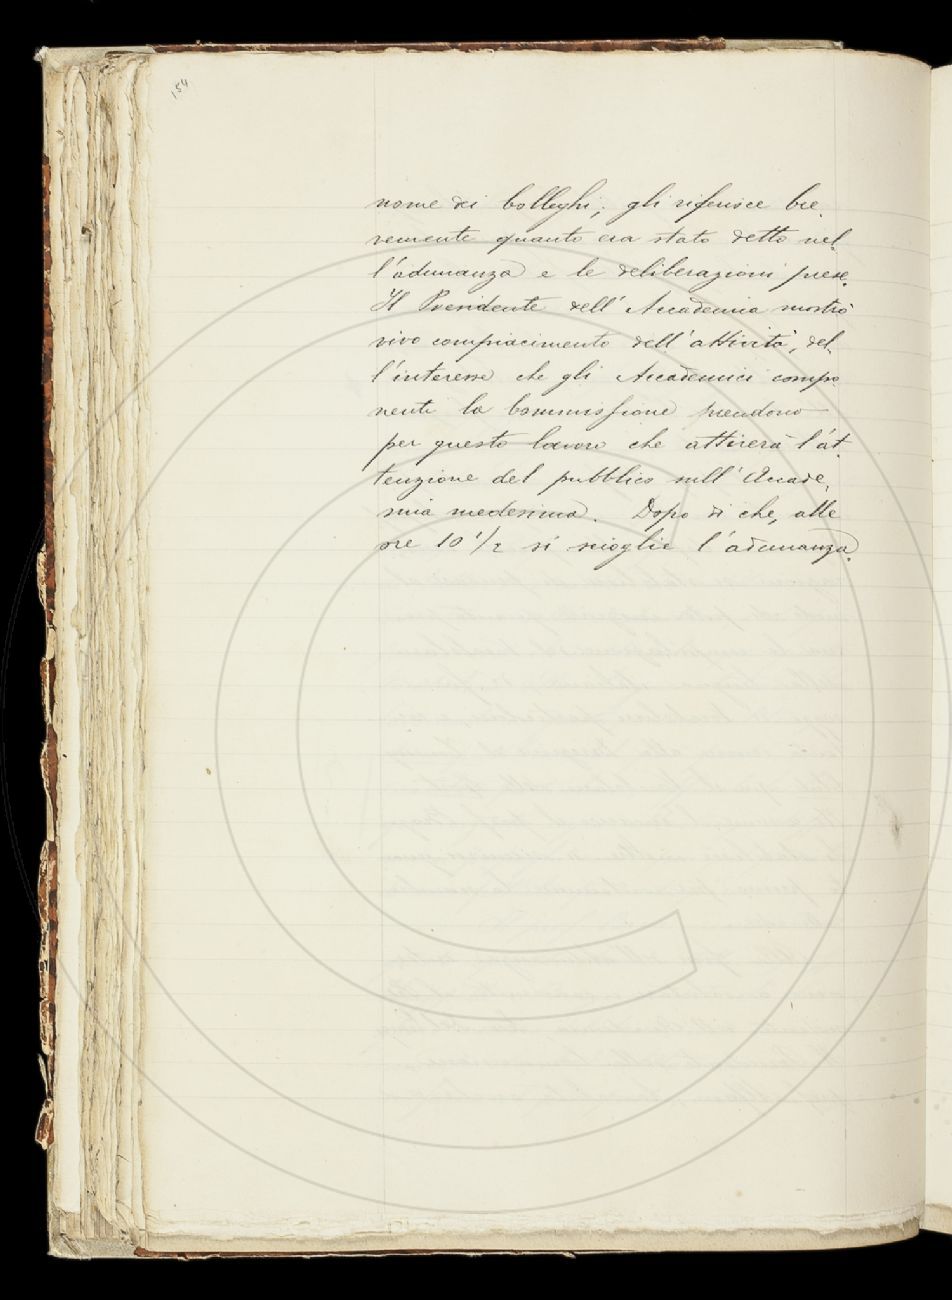 154
nome dei Colleghi, gli riferisce bre-
vemente quanto era stato detto nel-
l'adunanza e le deliberazioni prese.
Il Presidente dell'Accademia mostrò
vivo compiacimento dell'attività, del-
l'interesse che gli Accademici compo
nenti la Commissione prendono
per questo lavoro che attirerà l'at-
tenzione del pubblico sull'Accade-
mia medesima. Dopo di che, alle
ore 10 1/2 si scioglie l'adunanza.